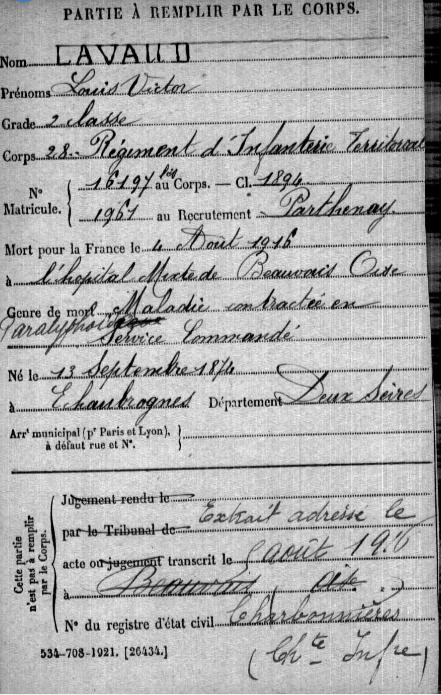 PARTIE À REMPLIR PAR LE CORPS.
Nom LAVAUD
Prénoms Louis Victor
Grade 2 classe
Corps 28 Régiment d'Infanterie Territorial
N° Matricule. { 16197 bis au Corps. — Cl. 1894
1961 au Recrutement Parthenay
Mort pour la France le 4 Août 1916
à l'hopital Mixte de Beauvais Oise
Genre de mort Maladie contractée en
Paratyphoïde Service Commandé
Né le 13 Septembre 1874
à Echaubrognes Département Deux Sèvres
Arrt municipal (pr Paris et Lyon), }
à défaut rue et N°.
Cette partie n'est pas à remplir par le Corps.
Jugement rendu le
par le Tribunal de Extrait adressé le
acte ou jugement transcrit le août 1916
à Beauvais Oise
N° du registre d'état civil Charbonnières
534-708-1921. [26434.] (Chte Infre)